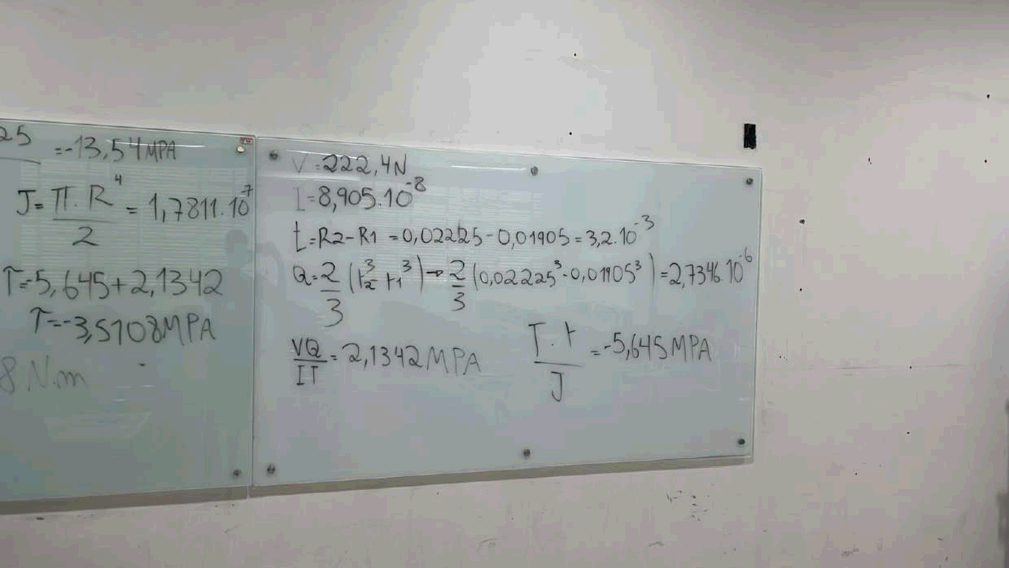 25 =-13,54MPA
J=π.R⁴/2 = 1,7811.10⁻⁷
T=5,645+2,1342
T=-3,5108MPA
8 N.m
V=222,4N
I=8,905.10⁻⁸
t=R2-R1 =0,02225-0,01905=3,2.10⁻³
Q=2/3 (r₂³+r₁³)→2/3 (0,02225³-0,01905³)=2,7346 10⁻⁶
VQ/IT=2,1342MPA
T.r/J=-5,645MPA